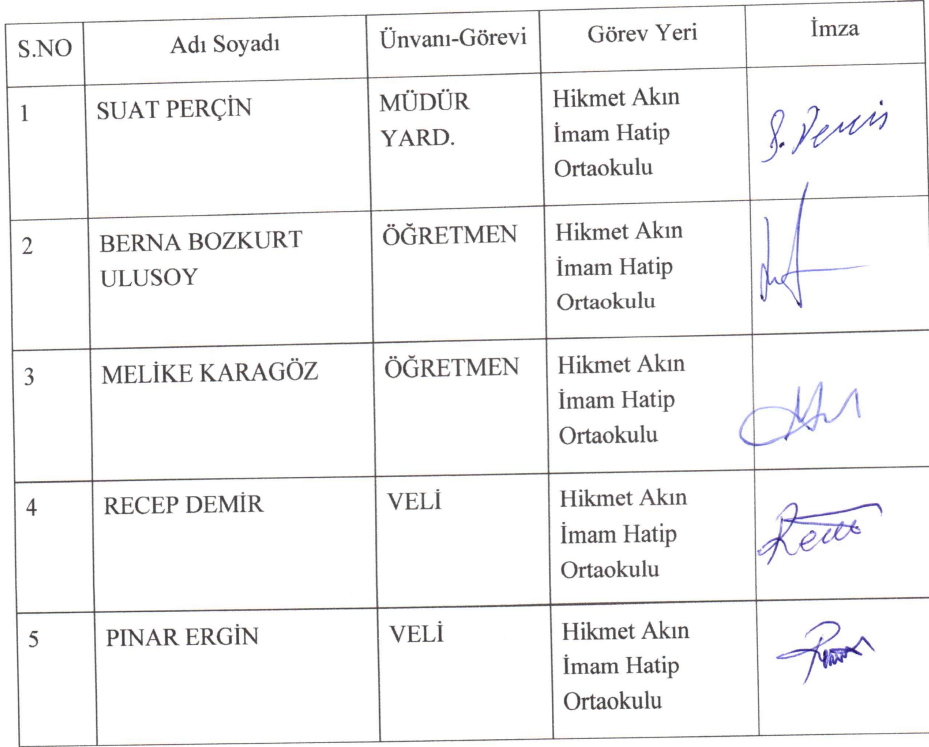 S.NO Adı Soyadı Ünvanı-Görevi Görev Yeri İmza
1 SUAT PERÇİN MÜDÜR YARD. Hikmet Akın İmam Hatip Ortaokulu
2 BERNA BOZKURT ULUSOY ÖĞRETMEN Hikmet Akın İmam Hatip Ortaokulu
3 MELİKE KARAGÖZ ÖĞRETMEN Hikmet Akın İmam Hatip Ortaokulu
4 RECEP DEMİR VELİ Hikmet Akın İmam Hatip Ortaokulu
5 PINAR ERGİN VELİ Hikmet Akın İmam Hatip Ortaokulu